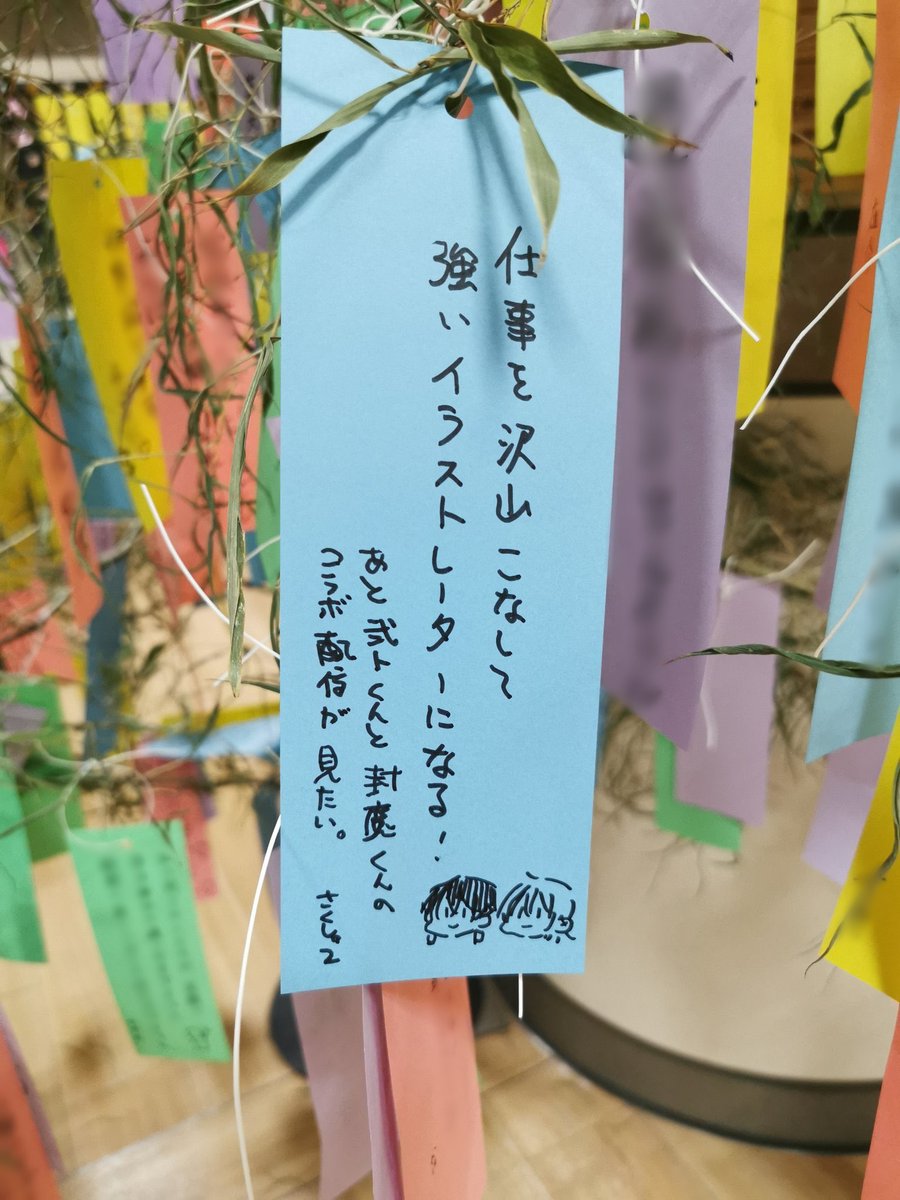 仕事を沢山こなして
強いイラストレーターになる!
あと弐トくんと封魔くんの
コラボ配信が見たい。
さくしゃ2